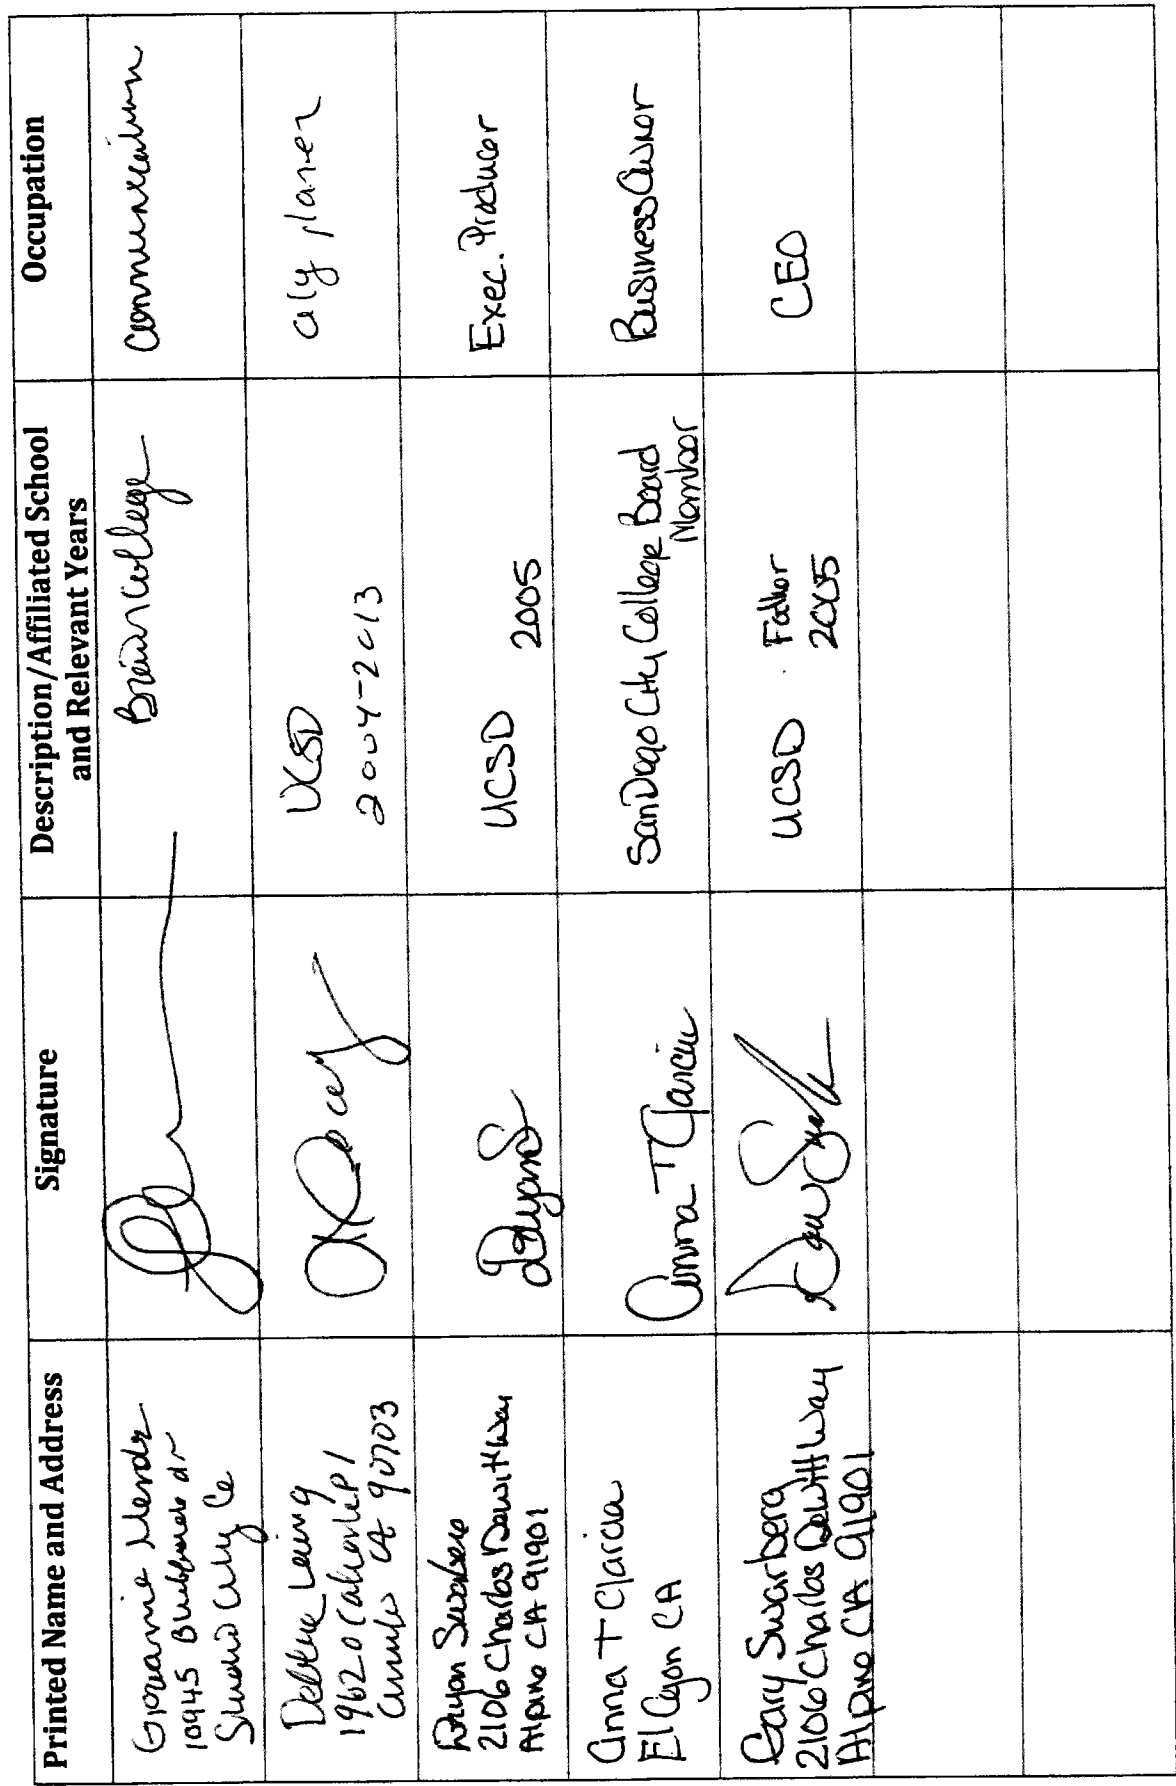 Printed Name and Address
Signature
Description/Affiliated School
and Relevant Years
Occupation
10945
Studio City Ca
Brown College
Communication
Debbie
19620
CA 90703
UCSD
2004-2013
City planer
2106 Charles Dewitt Way
Alpine CA 91901
UCSD
2005
Exec. Producer
Anna T Garcia
El Cajon CA
Anna T Garcia
San Diego City College Board
Member
Business Owner
Gary Swarberg
2106 Charles Dewitt Way
Alpine CA 91901
UCSD Father
2005
CEO